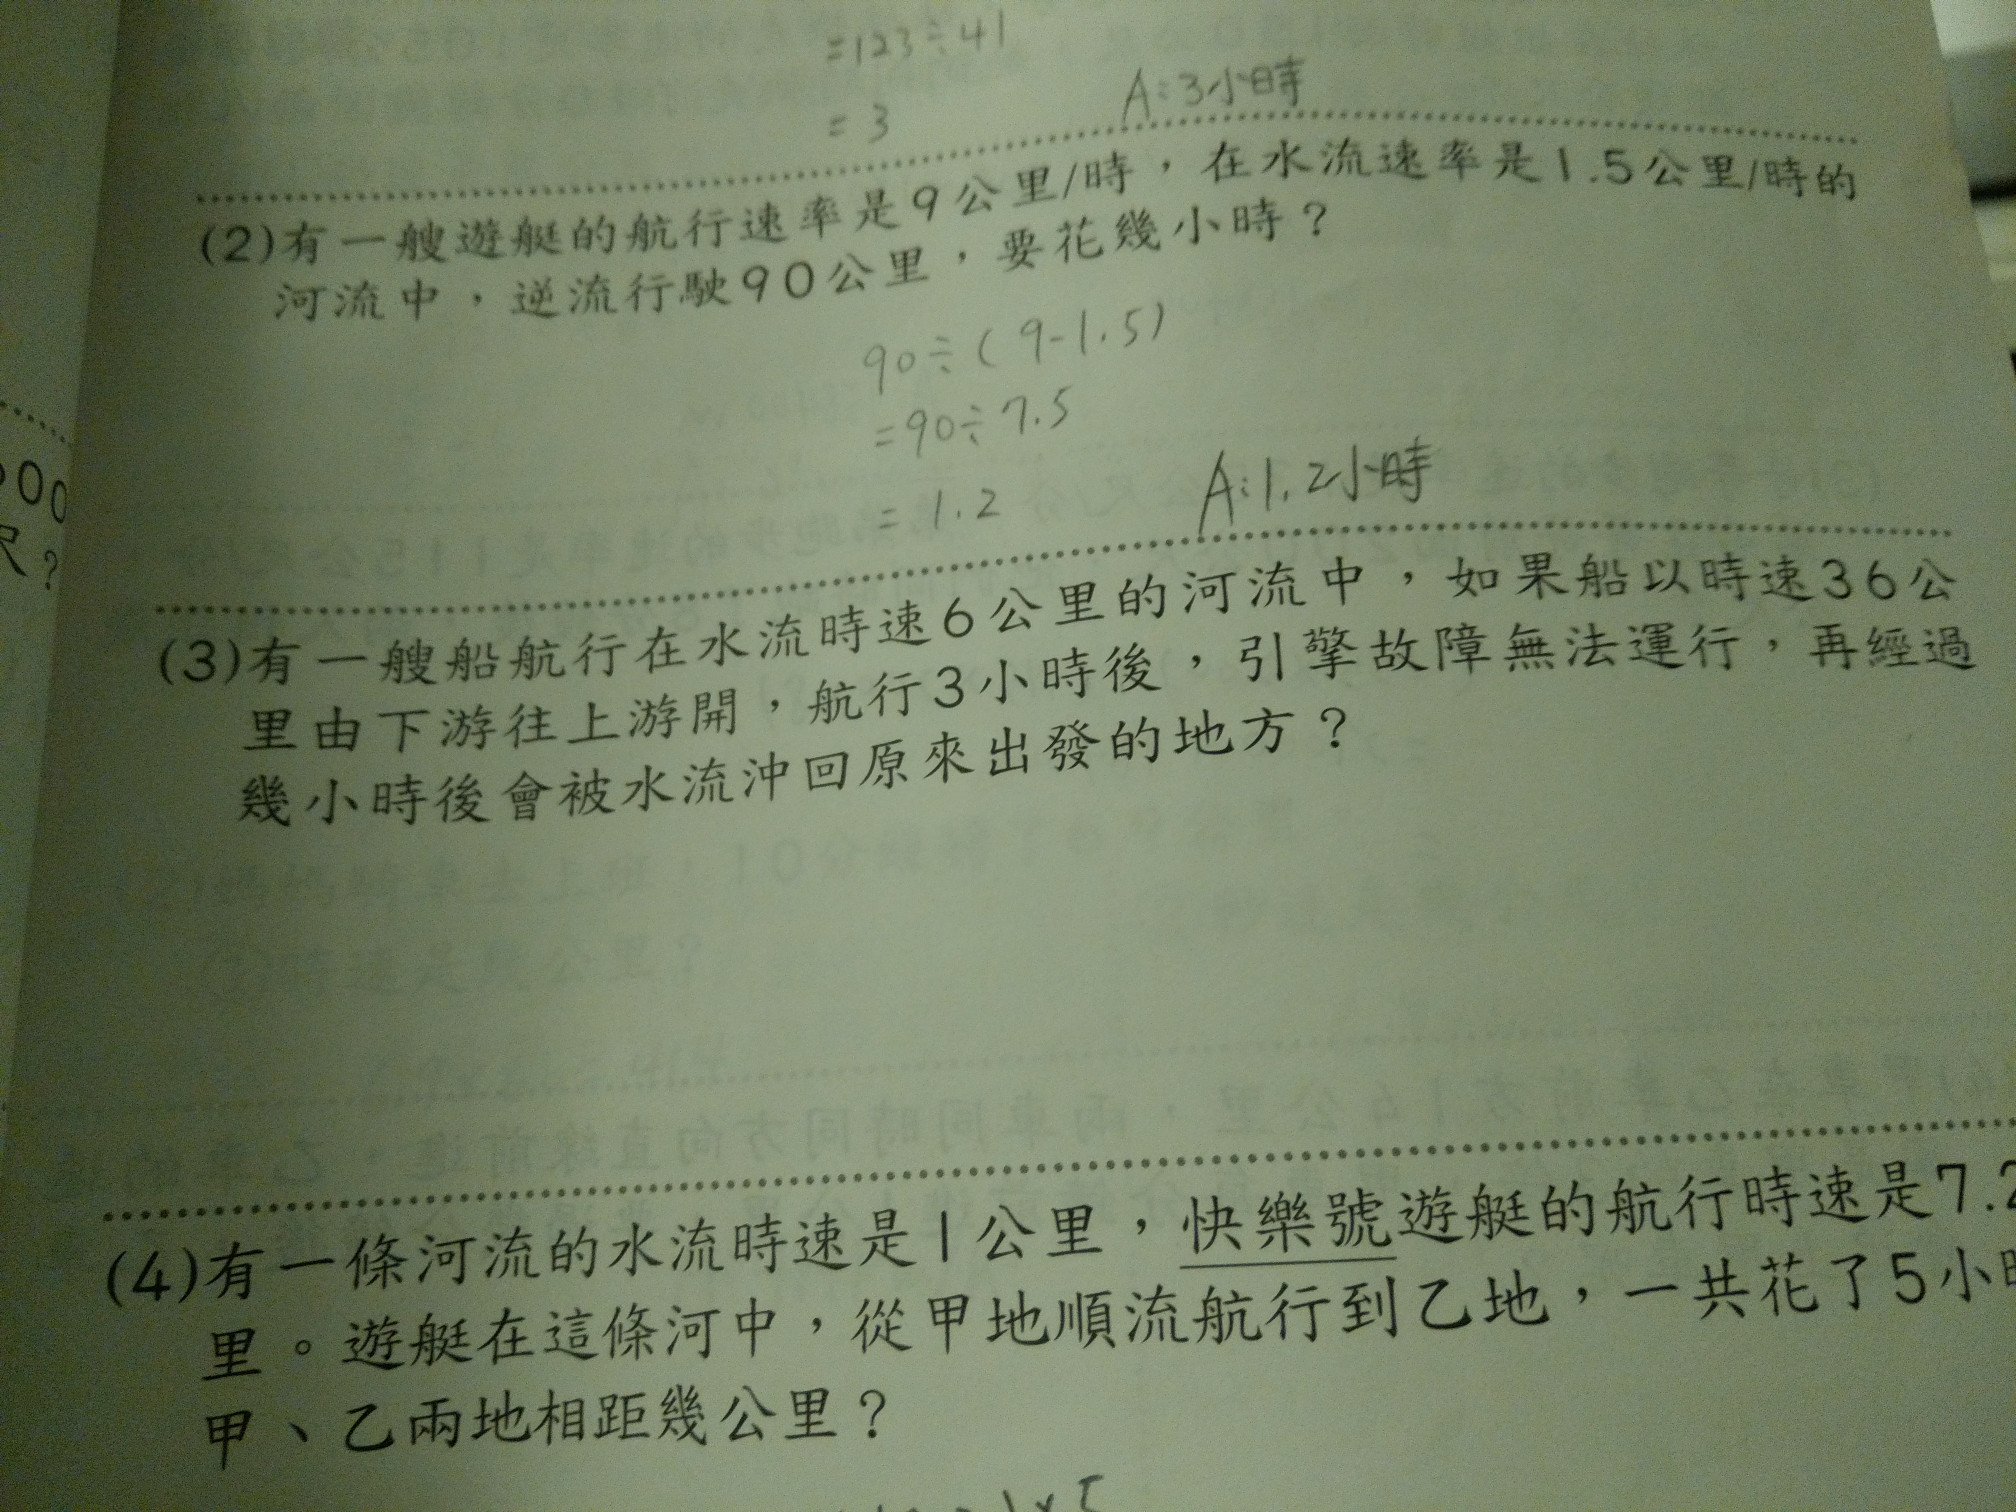 =123÷41
=3
A:3小時
(2)有一艘遊艇的航行速率是9公里/時，在水流速率是1.5公里/時的
河流中，逆流行駛90公里，要花幾小時？
90÷(9-1.5)
=90÷7.5
=1.2
A:1.2小時
00
尺？
(3)有一艘船航行在水流時速6公里的河流中，如果船以時速36公
里由下游往上游開，航行3小時後，引擎故障無法運行，再經過
幾小時後會被水流沖回原來出發的地方？
(4)有一條河流的水流時速是1公里，快樂號遊艇的航行時速是7.2
里。遊艇在這條河中，從甲地順流航行到乙地，一共花了5小時
甲、乙兩地相距幾公里？